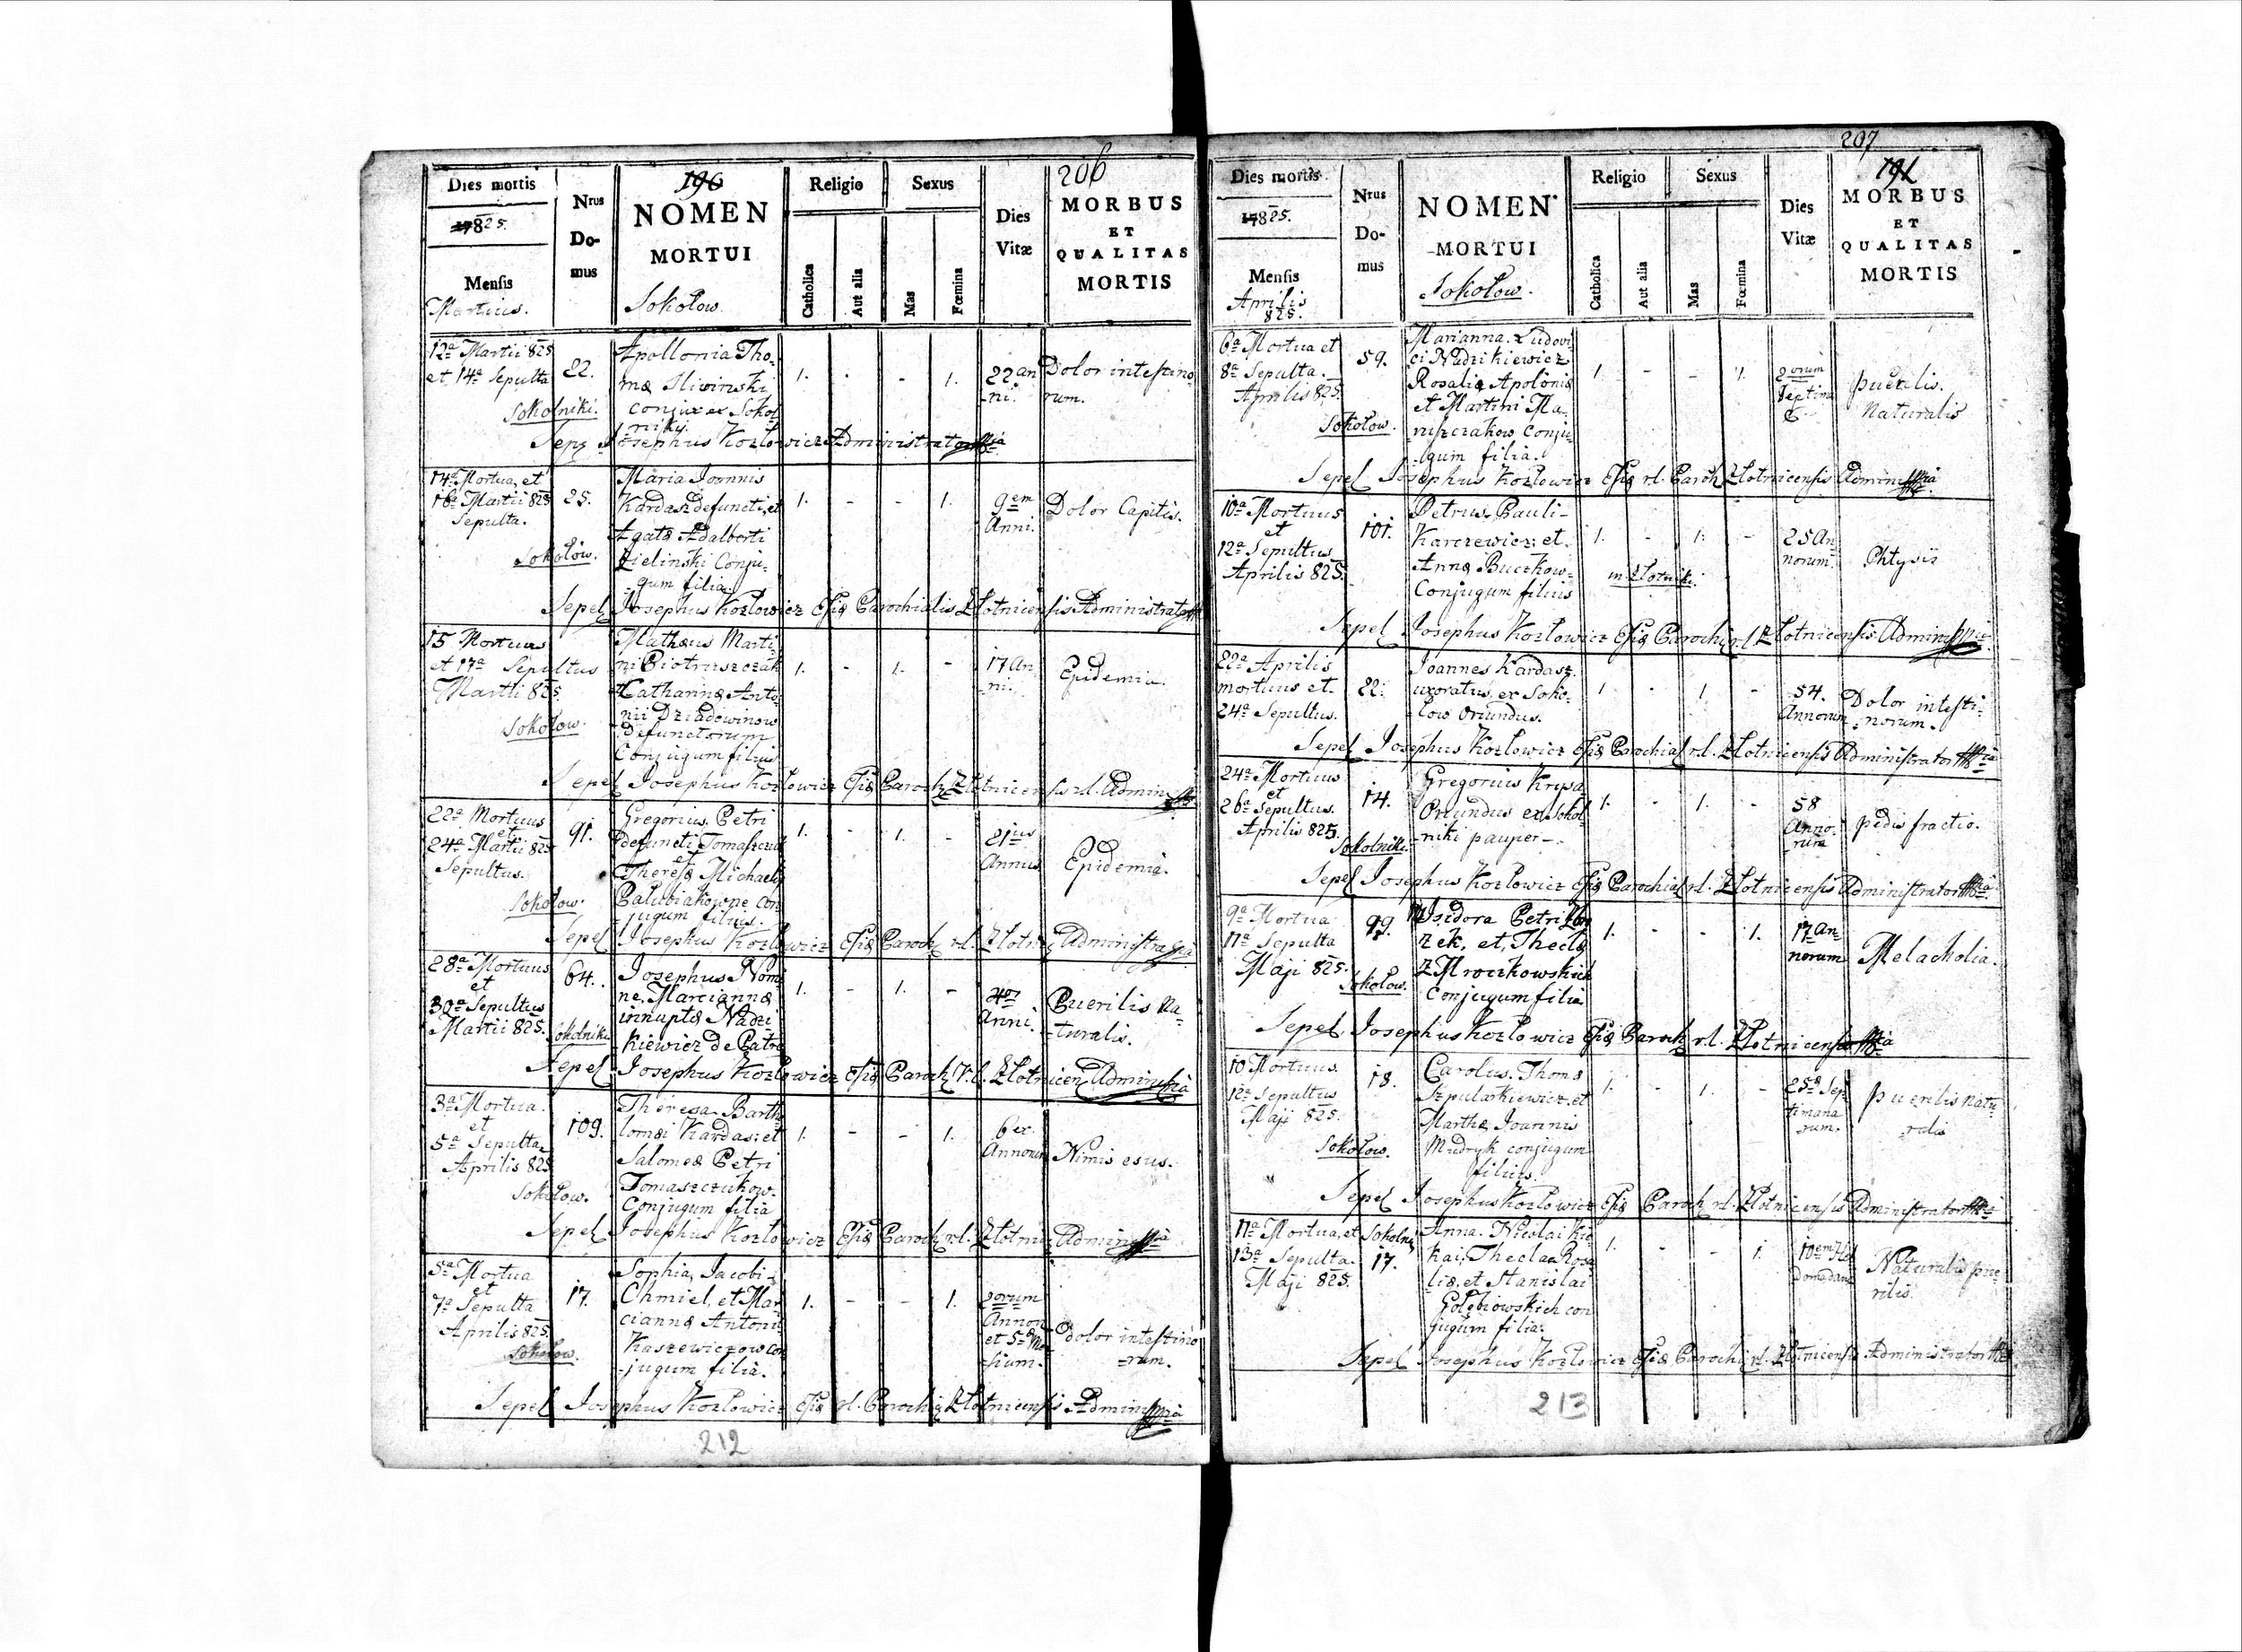 206
196
Dies mortis
1825.
Mensis
Martius.
Nrus
Do-
mus
NOMEN
MORTUI
Sokołow
Religio
Catholica
Aut alia
Sexus
Mas
Fœmina
Dies
Vitæ
MORBUS
ET
QUALITAS
MORTIS
12a Martii 825
et 14a Sepulta
Sokolniki.
22.
Apollonia Tho-
mæ Sliwinski
conjux ex Sokol
niki.
1. - - 1.
22 an
ni.
Dolor intestino
rum.
Sep Josephus Kozłowicz Administrator
14a Mortua, et
16a Martii 825
Sepulta.
Sokołow.
25.
Maria Joannis
Kardasz defuncti, et
Agatæ Adalberti
Zielinski Conju-
gum filia.
1. - - 1.
9em
Anni.
Dolor Capitis.
Sepel Josephus Kozłowicz Ecsiæ Parochialis Złotnicensis Administrator
15 Mortuus
et 17a Sepultus
Martii 825.
Sokołow.
Mathæus Marti
ni Piotruszczak
Catharinæ Anto
nii Dziadowinow
Defunctorum
Conjugum filius
1. - 1. -
17 An
ni.
Epidemia.
Sepel Josephus Kozłowicz Ecsiæ Paroch Złotnicensis rl. Admini
22a Mortuus
et
24a Martii 825
Sepultus.
Sokołow.
91.
Gregorius Petri
defuncti Tomaszczuk
et
Theresæ Michaelis
Palubiakowne con
jugum filius.
1. - 1. -
21ius
Annus
Epidemia.
Sepel Josephus Kozłowicz Ecsiæ Paroch rl. Złotni Administra
28a Mortuus
et
30a Sepultus
Martii 825.
Sokolniki
64.
Josephus Nomi
ne, Marciannæ
innuptæ Nadzi
kiewicz de Patre
1. - 1. -
4or
Anni.
Puerilis Na-
turalis.
Sepel Josephus Kozłowicz Ecsiæ Paroch r.l. Złotnicen Admini
3a Mortua.
et
5a Sepulta
Aprilis 825
Sokołow.
109.
Theresa Bartho
lomæi Kardas: et
Salomeæ Petri
Tomaszczukow.
Conjugum filia
1. - - 1.
6ex.
Annorum
Nimis esus.
Sepel Josephus Kozłowicz Ecsiæ Paroch rl. Złotni Admini
5a Mortua
et
7a Sepulta
Aprilis 825.
Sokołow.
17.
Sophia, Jacobi
Chmiel, et Mar
ciannæ Antoni
Kaszewiczow con
jugum filia.
1. - - 1.
2orum
Annor
et 5 Men
sium.
dolor intestino
rum.
Sepel Josephus Kozłowicz Ecsiæ rl. Parochi Złotnicensis Admini
212
207
191
Dies mortis
1825.
Mensis
Aprilis
825.
Nrus
Do-
mus
NOMEN
MORTUI
Sokołow.
Religio
Catholica
Aut alia
Sexus
Mas
Fœmina
Dies
Vitæ
MORBUS
ET
QUALITAS
MORTIS
6a Mortua et
8a Sepulta.
Aprilis 825.
Sokołow.
59.
Marianna Ludovi
ci Nadzikiewicz
Rosaliæ Apoloniæ
et Martini Ma
ruszczakow Conju
gum filia.
1. - - 1.
2orum
Septima
puerilis.
Naturalis
Sepel Josephus Kozłowicz Ecsiæ rl. Paroch Złotnicensis Admini
10a Mortuus
et
12a Sepultus
Aprilis 825.
101.
Petrus Pauli
Karczewicz: et.
Annæ Buczkow
Conjugum filius
1. - 1. -
in Złotniki.
25 An
norum
Phtysis
Sepel Josephus Kozłowicz Ecsiæ Parochi rl. Złotnicensis Admini
22a Aprilis
mortuus et
24a Sepultus.
22.
Joannes Kardasz
uxoratus, ex Soko
low oriundus.
1. - 1. -
54.
Annorum
Dolor intesti-
norum.
Sepel Josephus Kozłowicz Ecsiæ Parochial rl. Złotnicensis Administrator
24a Mortuus
et
26a Sepultus.
Aprilis 825.
Sokolniki.
14.
Gregorius Krysa
Oriundus ex Sokol
niki pauper
1. - 1. -
58
Anno-
rum
pedis fractio.
Sepel Josephus Kozłowicz Ecsiæ Parochial rl. Złotnicensis Administrator
9a Mortua
11a Sepulta
Maji 825.
Sokołow.
99.
Isidora Petri
zek, et, Theclæ
z Mroczkowskich
Conjugum filia
1. - - 1.
17 An-
norum
Melacholia.
Sepel Josephus Kozłowicz Ecsiæ Paroch rl. Złotnicensis
10 Mortuus.
12a Sepultus
Maji 825.
Sokołow.
18.
Carolus. Thomæ
Szpularkiewicz, et
Marthæ Joannis
Mudryk conjugum
filius.
1. - 1. -
25a Sep
timana
rum.
puerilis natu
ralis
Sepel Josephus Kozłowicz Ecsiæ Paroch rl. Złotnicensis Administrator
11a Mortua, et
13a Sepulta.
Maji 825.
Sokolni
17.
Anna. Nicolai Kie
kai, Thecla Rosa
liæ, et Stanislai
Gołębiowskich con
jugum filia.
1. - - 1.
10em Heb
domadarum
Naturalis pue
rilis.
Sepel Josephus Kozłowicz Ecsiæ Parochi rl. Złotnicensis Administrator
213